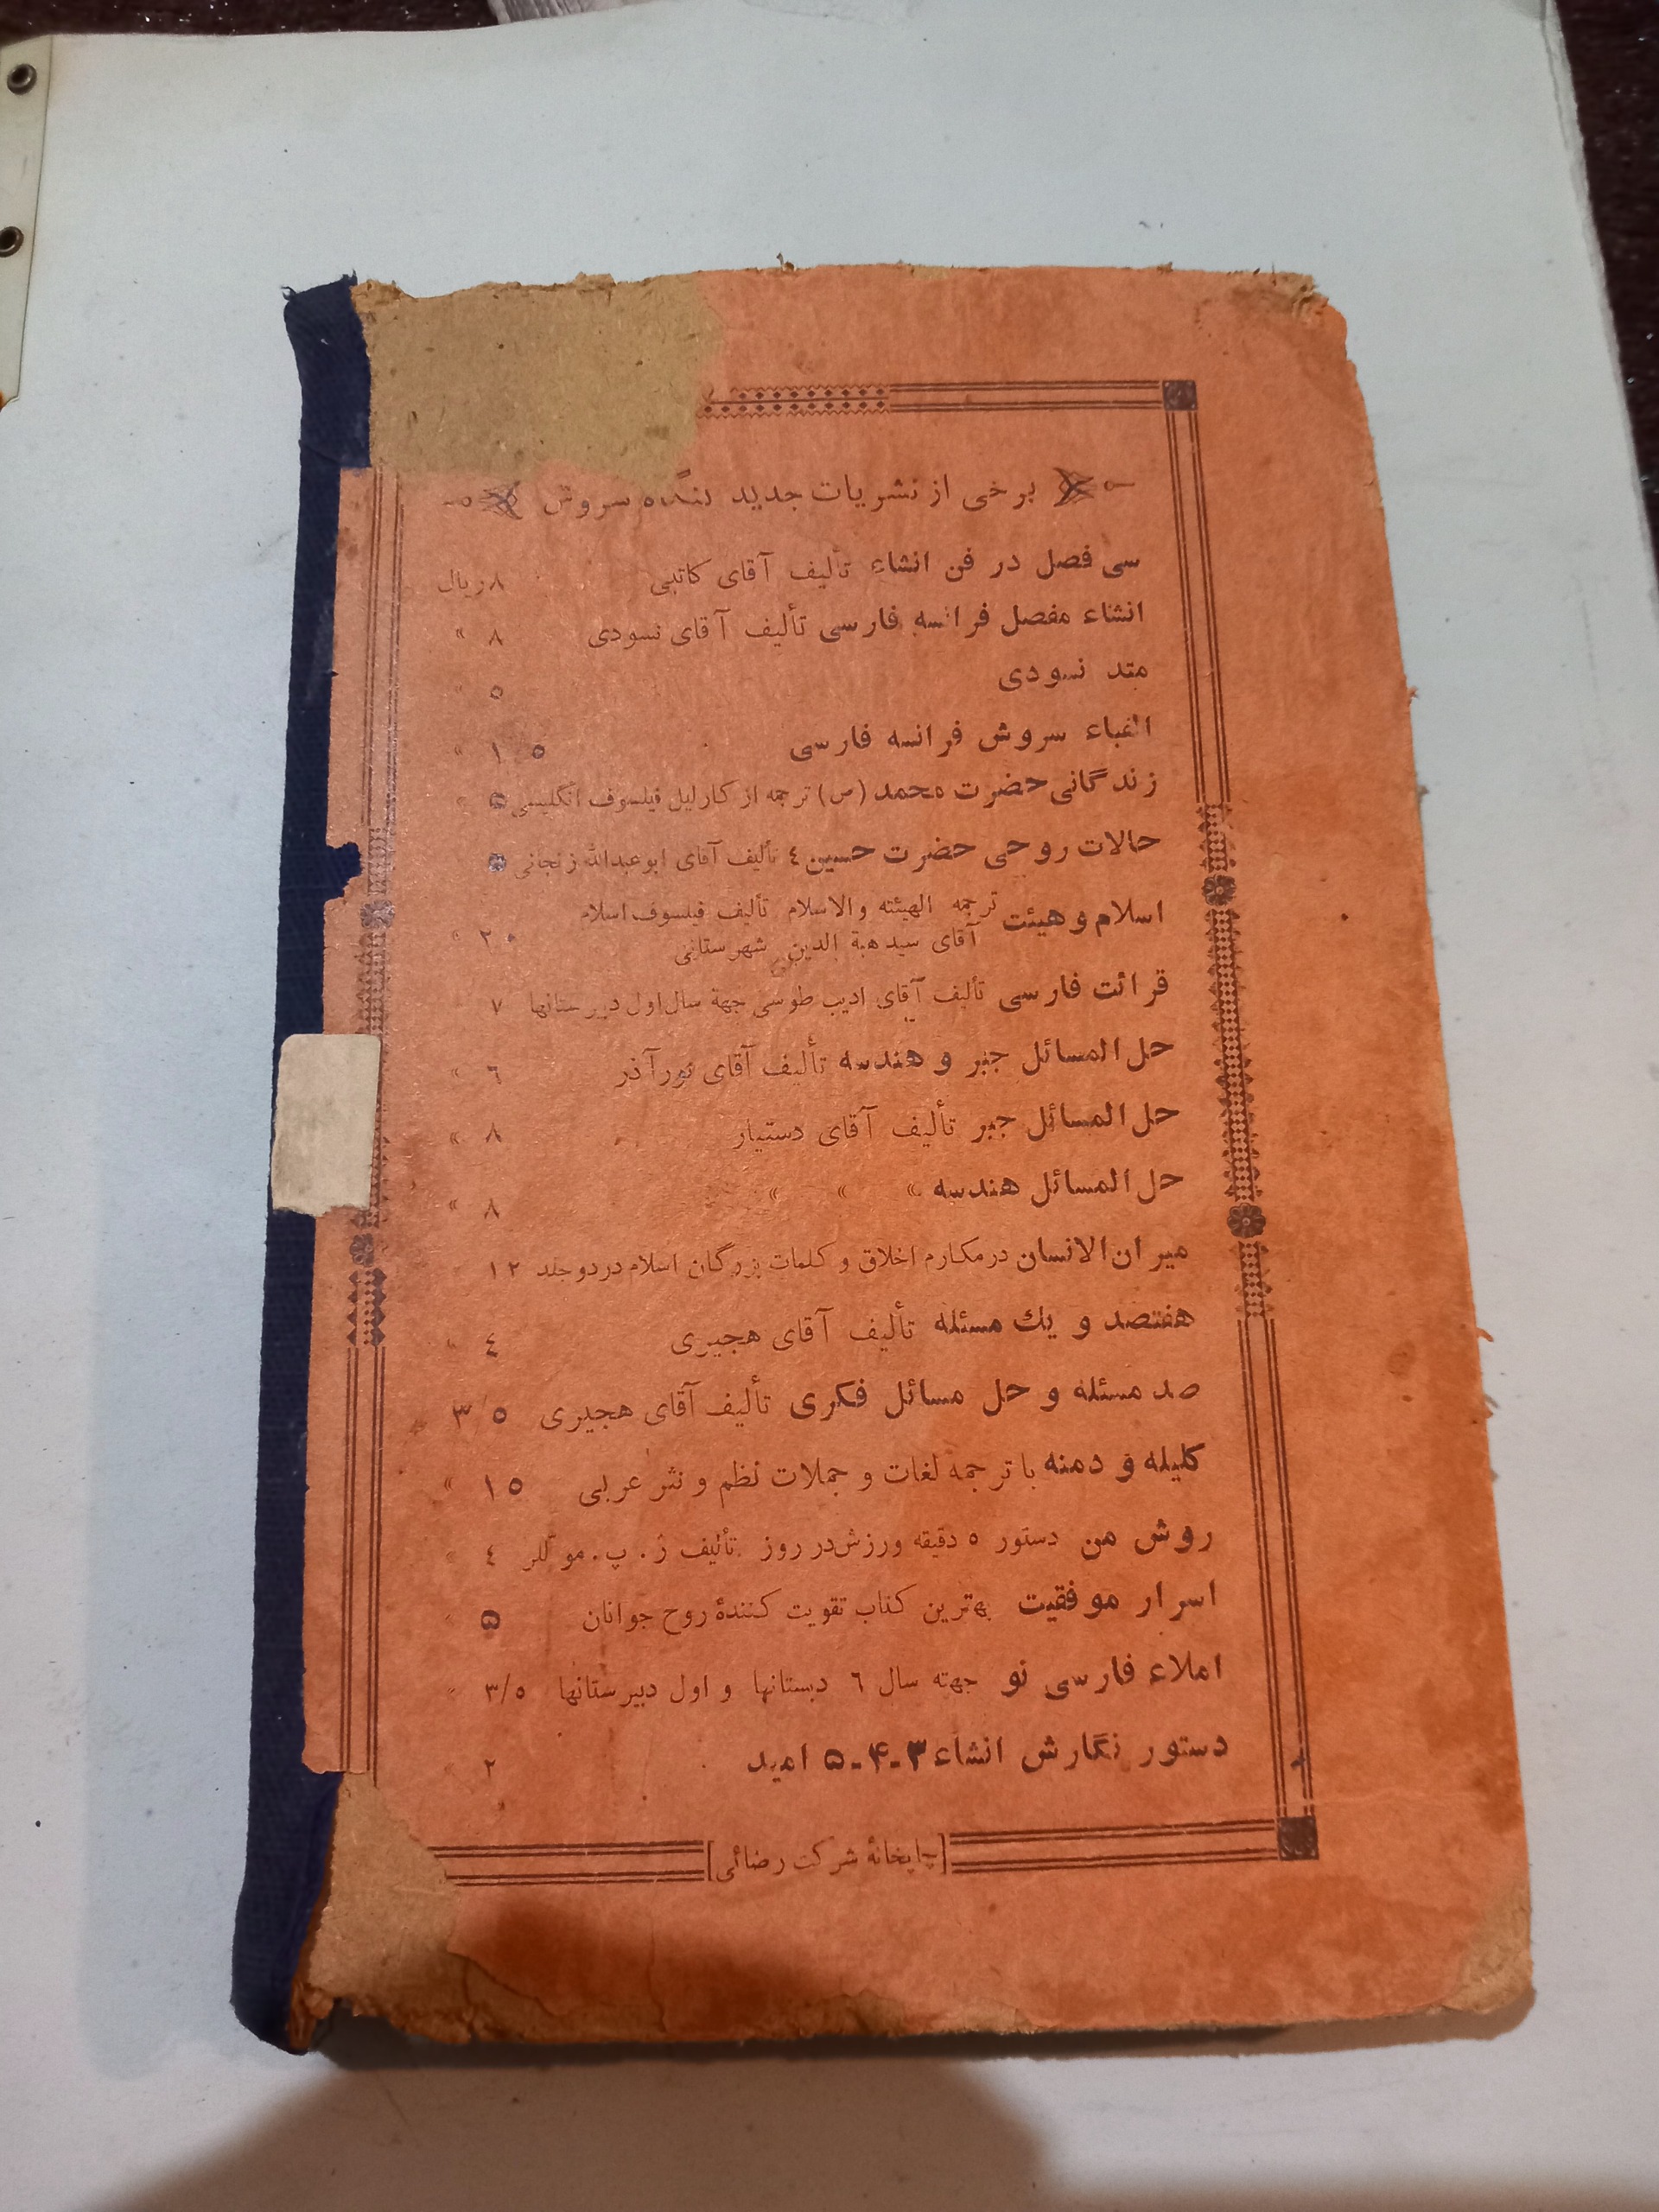 برخی از نشریات جدید بنگاه سروش
سی فصل در فن انشاء تألیف آقای کاتبی ۸ ریال
انشاء مفصل فرانسه فارسی تألیف آقای نسودی ۸ »
متد نسودی ۵ »
الفباء سروش فرانسه فارسی ۱ ۵ »
زندگانی حضرت محمد (ص) ترجمه از کارلیل فیلسوف انگلیسی »
حالات روحی حضرت حسین ع تألیف آقای ابوعبدالله زنجانی
اسلام و هیئت ترجمه الهیئته والاسلام تألیف فیلسوف اسلام
آقای سید هبة الدین شهرستانی ۲۰ »
قرائت فارسی تألیف آقای ادیب طوسی جهة سال اول دبیرستانها ۷
حل المسائل جبر و هندسه تألیف آقای نورآذر ٦ »
حل المسائل جبر تألیف آقای دستیار ۸ »
حل المسائل هندسه » » » ۸ »
میران الانسان در مکارم اخلاق و کلمات بزرگان اسلام در دو جلد ۱۲
هفتصد و یك مسئله تألیف آقای هجیری ٤ »
صد مسئله و حل مسائل فکری تألیف آقای هجیری ۳/۵
کلیله و دمنه با ترجمه لغات و جملات نظم و نثر عربی ۱۵ »
روش من دستور ۵ دقیقه ورزش در روز تألیف ژ . پ . موللر ٤ »
اسرار موفقیت بهترین کتاب تقویت کنندۀ روح جوانان ۵ »
املاء فارسی نو جهته سال ٦ دبستانها و اول دبیرستانها ۳/۵ »
دستور نگارش انشاء ۳-۴-۵ امید ۲ »
[چاپخانۀ شرکت رضائی]